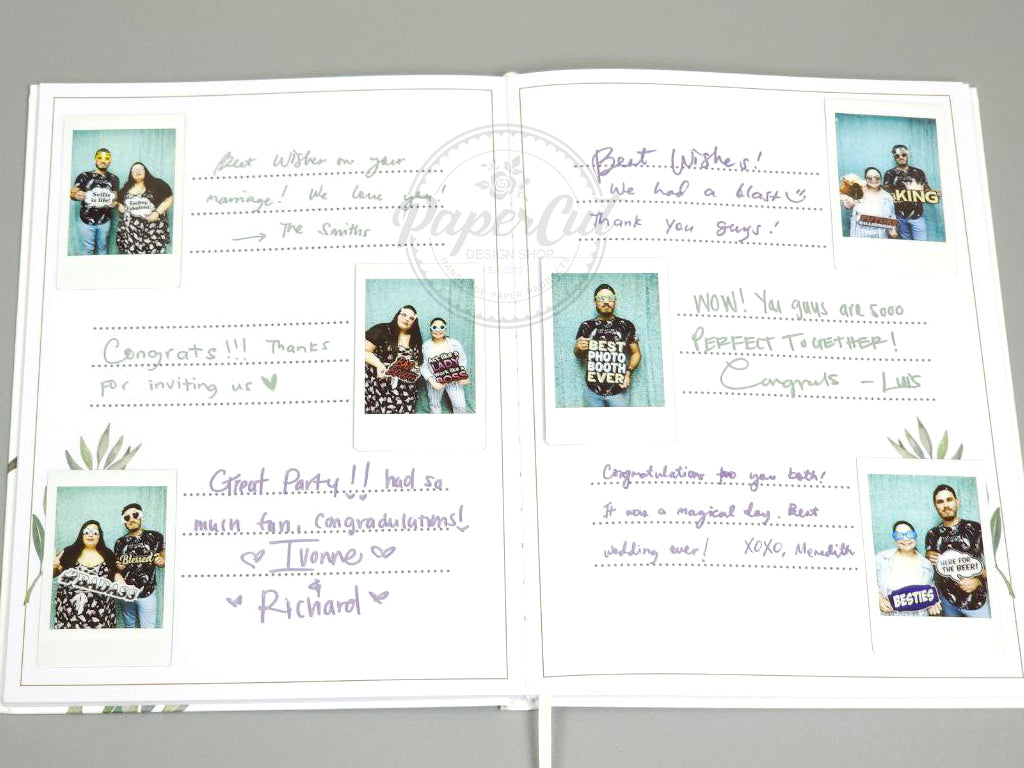 Best Wishes on your
marriage! We love you!
→ The Smiths
Selfie
is life!
Feeling
Fabulous!
Congrats!!! Thanks
for inviting us ♥
LADY
work like a
BOSS
Great Party!! had so
much fun. Congradulations!
♡ Ivonne ♡
&
Richard
Blessed
PaperCut
DESIGN SHOP
HANDMADE PAPER PRODUCTS
EST. 2015
Best Wishes!
We had a blast
Thank you guys!
KING
WOW! You guys are sooo
PERFECT TOGETHER!
Congrats – Luis
BEST
PHOTO
BOOTH
EVER
Congratulations too you both!
It was a magical day. Best
wedding ever! XOXO, Meredith
HERE FOR
THE BEER!
BESTIES